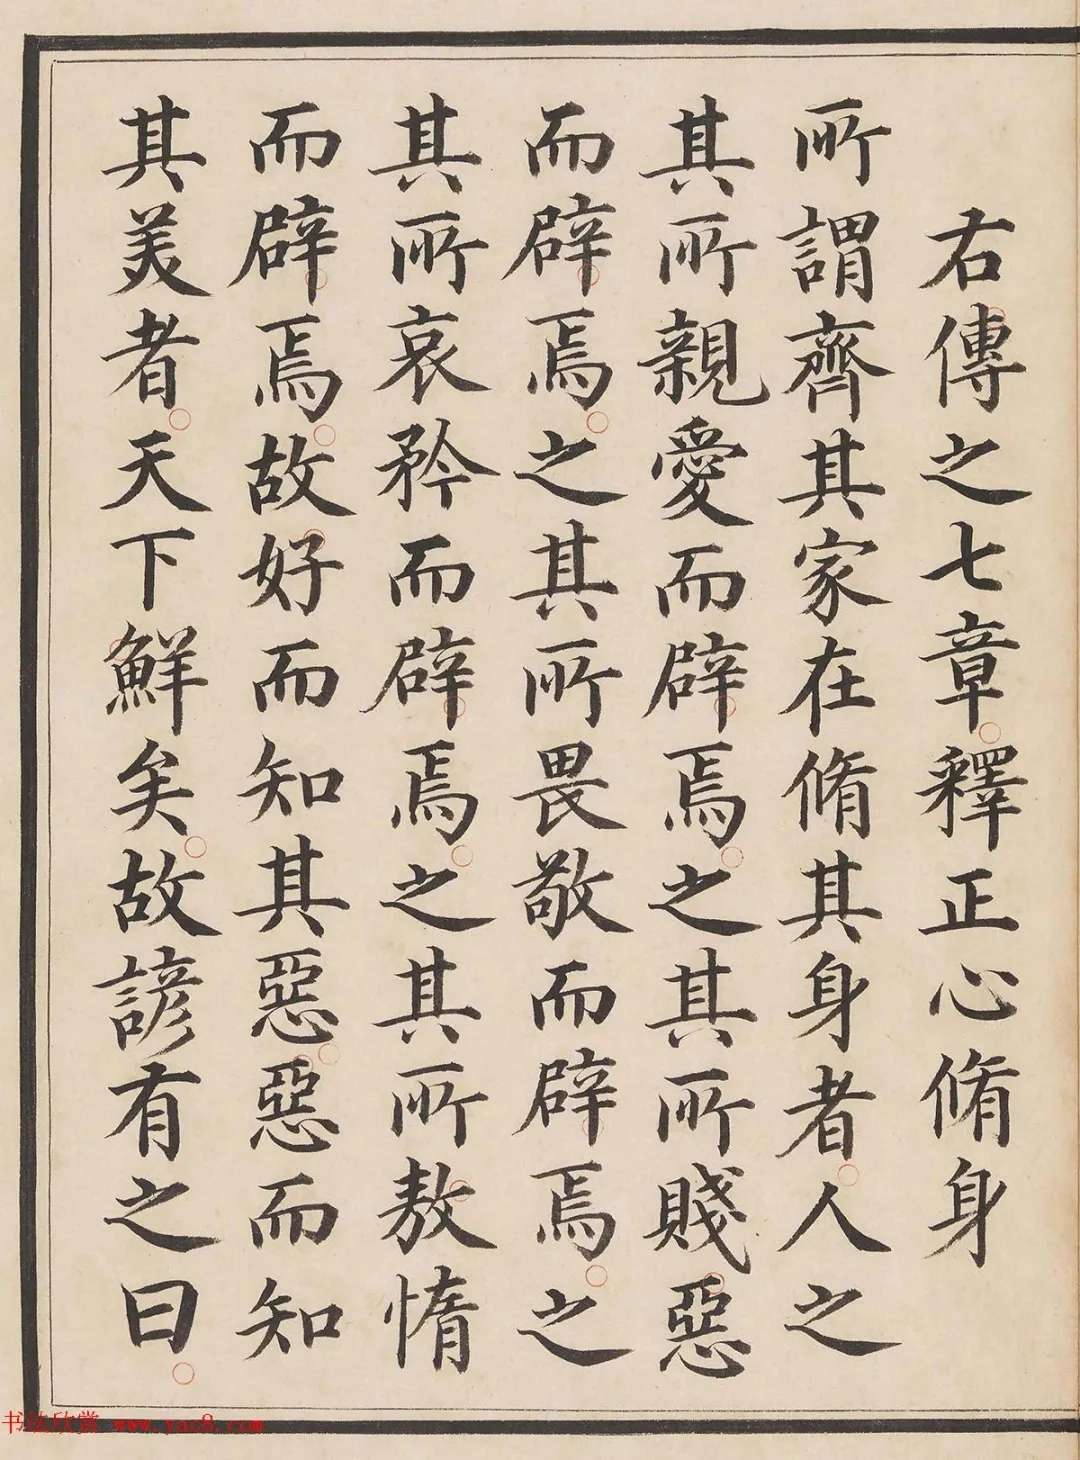 右傳之七章釋正心脩身
所謂齊其家在脩其身者人之
其所親愛而辟焉之其所賤惡
而辟焉之其所畏敬而辟焉之
其所哀矜而辟焉之其所敖惰
而辟焉故好而知其惡惡而知
其美者天下鮮矣故諺有之曰
书法欣赏 www.yac8.com